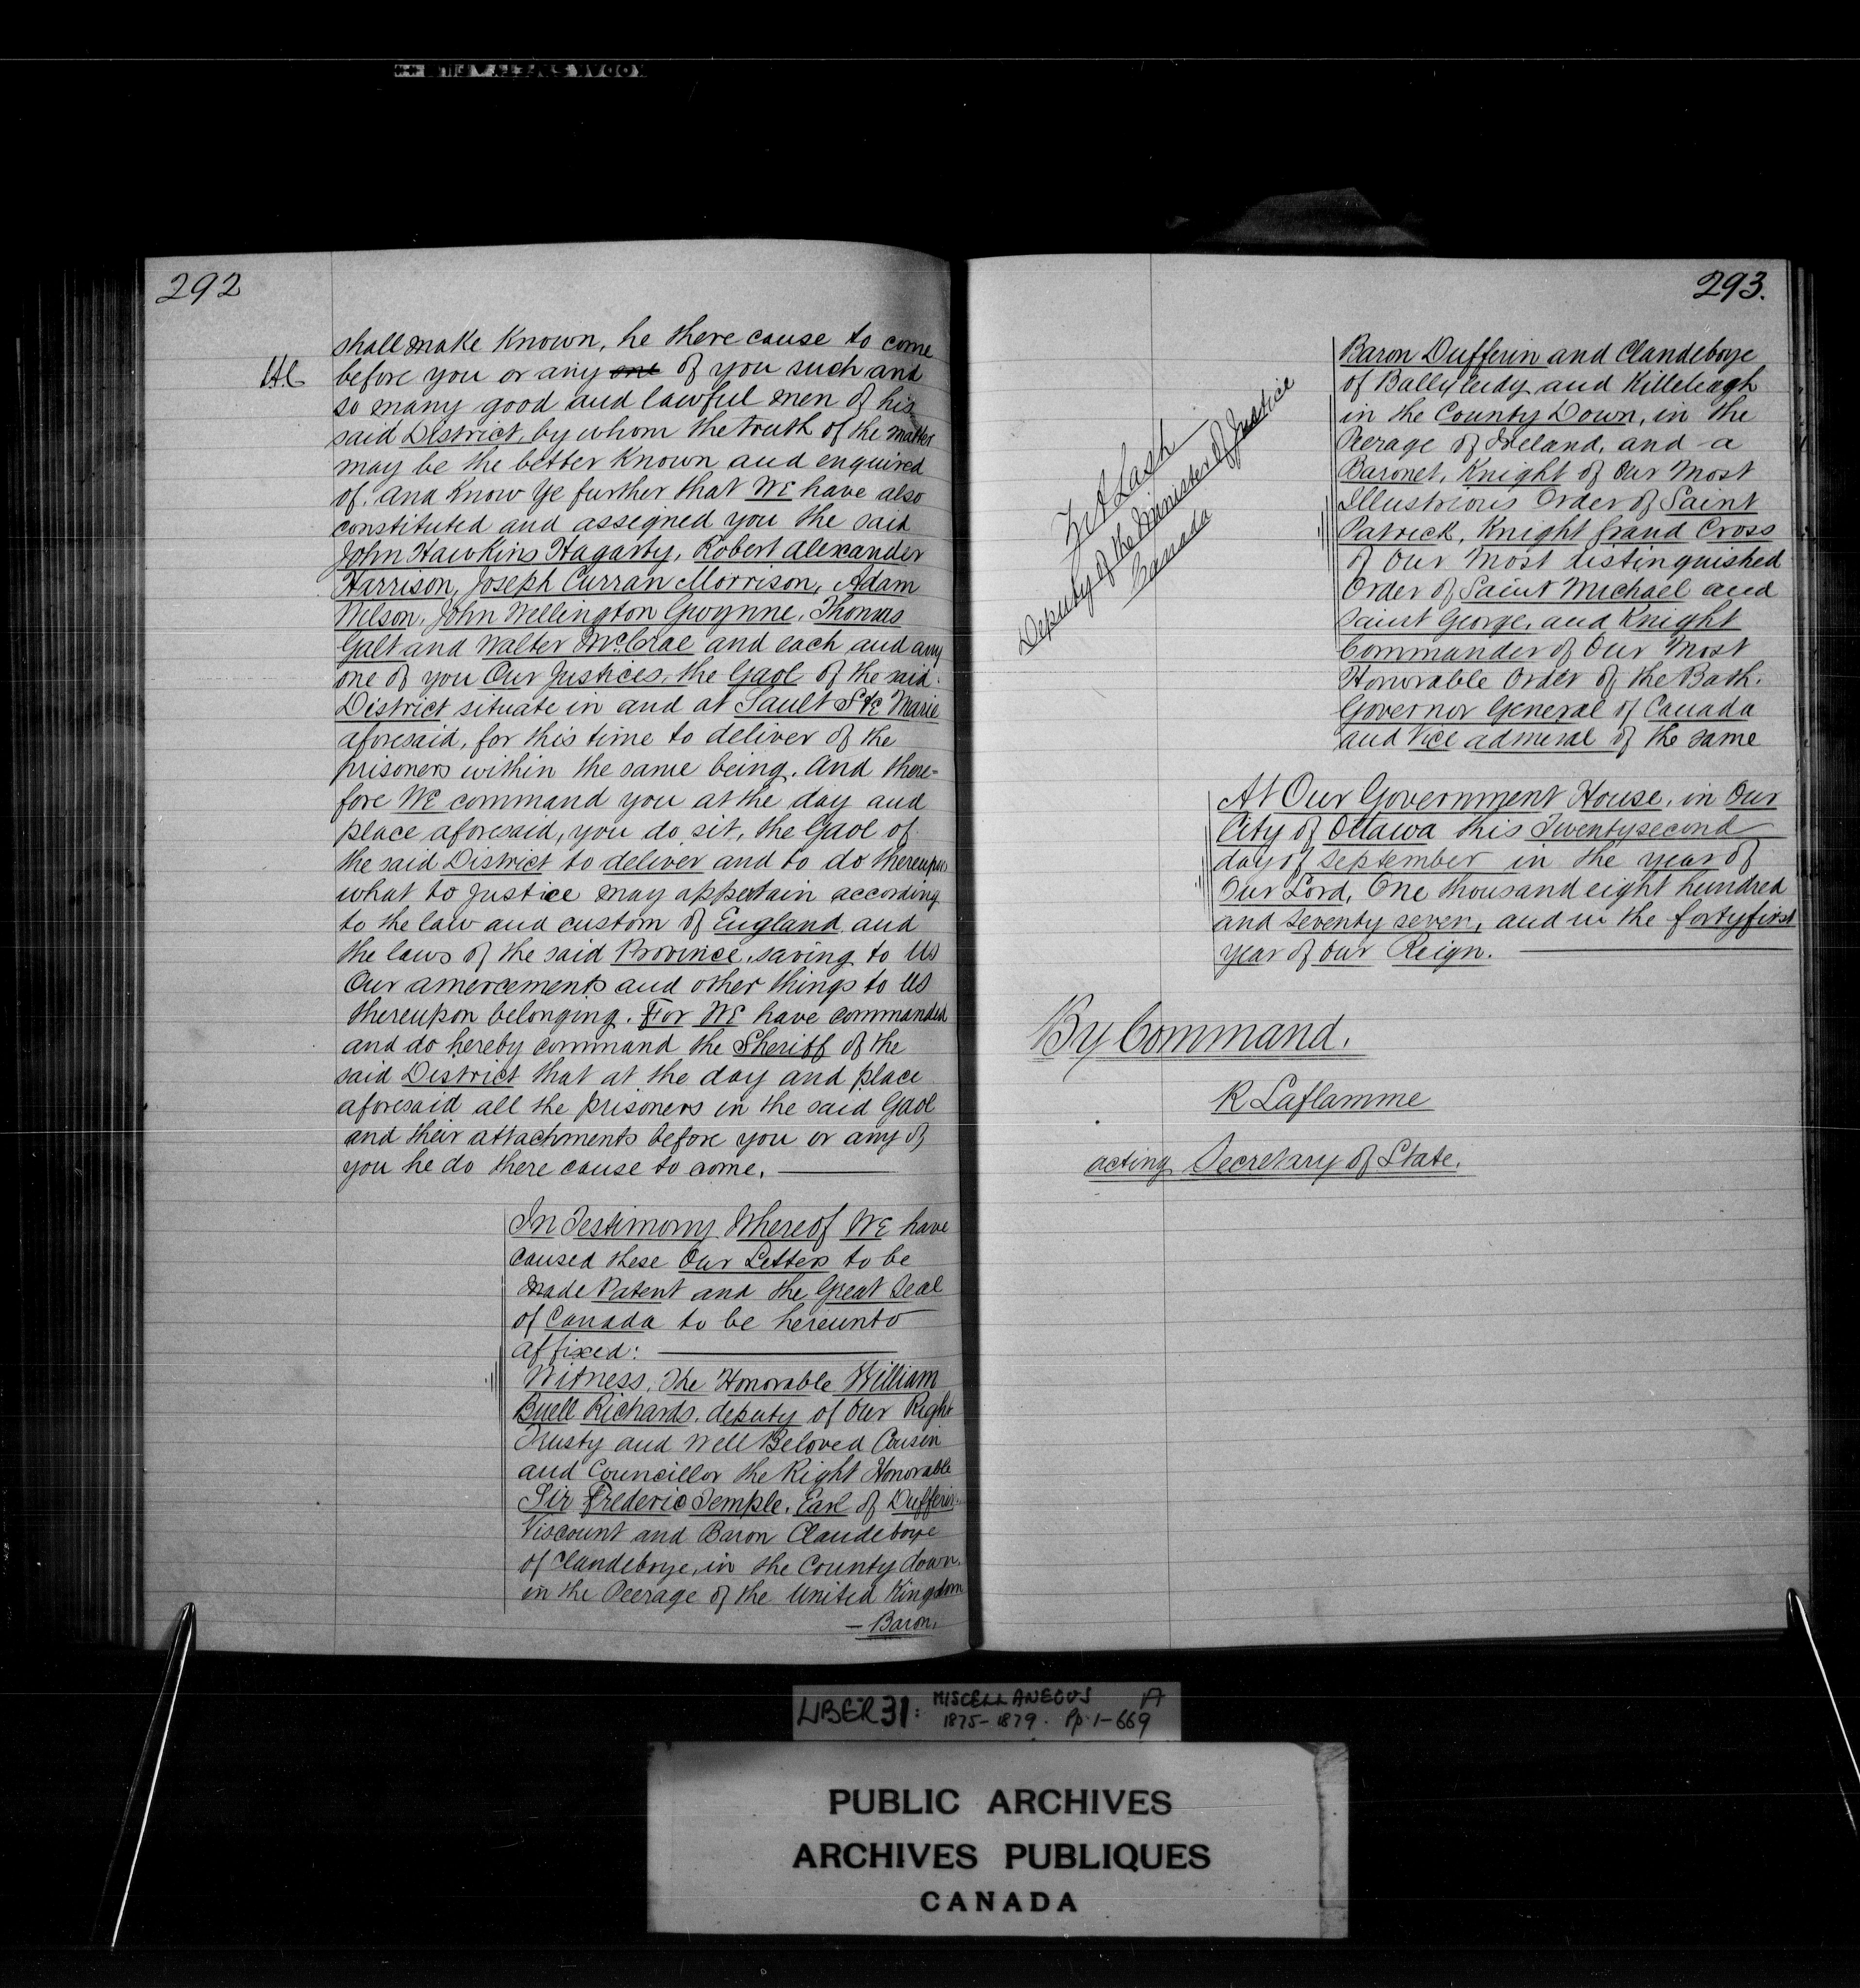 292
shall make Known, he there cause to come
H.C. before you or any one of you such and
so many good and lawful men of his
said District, by whom the truth of the matter
may be the better Known and enquired
of. And Know Ye further that WE have also
constituted and assigned you the said
John Hawkins Hagarty, Robert Alexander
Harrison, Joseph Curran Morrison, Adam
Wilson, John Wellington Gwynne, Thomas
Galt and Walter McCrae and each and any
one of you Our Justices, the Gaol of the said
District situate in and at Sault Ste Marie
aforesaid, for this time to deliver of the
prisoners within the same being. And there-
fore WE command you at the day and
place aforesaid, you do sit, the Gaol of
the said District to deliver and to do thereupon
what to Justice may appertain according
to the law and custom of England, and
the laws of the said Province, saving to Us
Our amercements and other things to Us
thereupon belonging. For WE have commanded
and do hereby command the Sheriff of the
said District that at the day and place
aforesaid all the prisoners in the said Gaol
and their attachments before you or any of
you he do there cause to come.
In Testimony Whereof WE have
caused these Our Letters to be
made Patent and the Great Seal
of Canada to be hereunto
affixed:
Witness, The Honorable William
Buell Richards, deputy of Our Right
Trusty and Well Beloved Cousin
and Councillor the Right Honorable
Sir Frederic Temple, Earl of Dufferin
Viscount and Baron Clandeboye
of Clandeboye, in the County down,
in the Peerage of the United Kingdom
- Baron,
293.
Baron Dufferin and Clandeboye
of Ballyleidy and Killeleagh
in the County Down, in the
Peerage of Ireland, and a
Baronet, Knight of Our Most
Illustrious Order of Saint
Patrick, Knight Grand Cross
of Our Most distinguished
Order of Saint Michael and
Saint George, and Knight
Commander of Our Most
Honorable Order of the Bath.
Governor General of Canada
and Vice admiral of the same
Z A Lash
Deputy of the Minister of Justice
Canada
At Our Government House, in Our
City of Ottawa this Twentysecond
day of September in the year of
Our Lord, One thousand eight hundred
and seventy seven, and in the fortyfirst
year of Our Reign.
By Command.
R Laflamme
acting Secretary of State.
LIBER 31: MISCELLANEOUS A
1875-1879. Pp. 1-669
PUBLIC ARCHIVES
ARCHIVES PUBLIQUES
CANADA